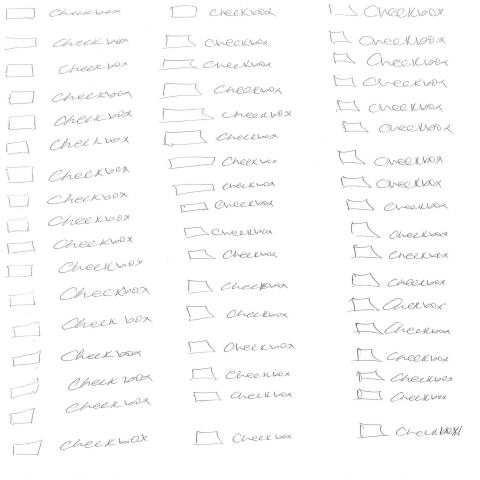 Checkbox
Checkbox
Checkbox
Checkbox
Checkbox
Checkbox
Checkbox
Checkbox
Checkbox
Checkbox
Checkbox
Checkbox
Check box
Checkbox
Check box
Checkbox
Checkbox
Checkbox
Checkbox
Checkbox
Checkbox
Checkbox
Checkbox
Checkbox
Checkbox
Checkbox
Checkbox
Checkbox
Checkbox
Checkbox
Checkbox
Checkbox
Checkbox
Checkbox
Checkbox
Checkbox
Checkbox
Checkbox
Checkbox
Checkbox
Checkbox
Checkbox
Checkbox
Checkbox
Checkbox
Checkbox
Checkbox
Checkbox
Checkbox
Checkbox
Checkbox
Checkbox